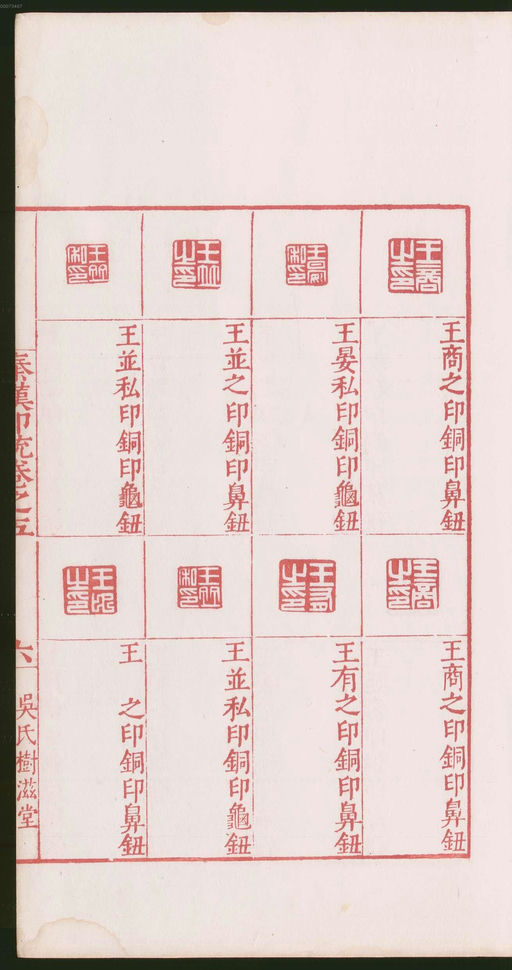 王商之印銅印鼻鈕
王晏私印銅印龜鈕
王並之印銅印鼻鈕
王並私印銅印龜鈕
王商之印銅印鼻鈕
王有之印銅印鼻鈕
王並私印銅印龜鈕
王 之印銅印鼻鈕
秦漢印統卷之五
六
吳氏樹滋堂
00073467